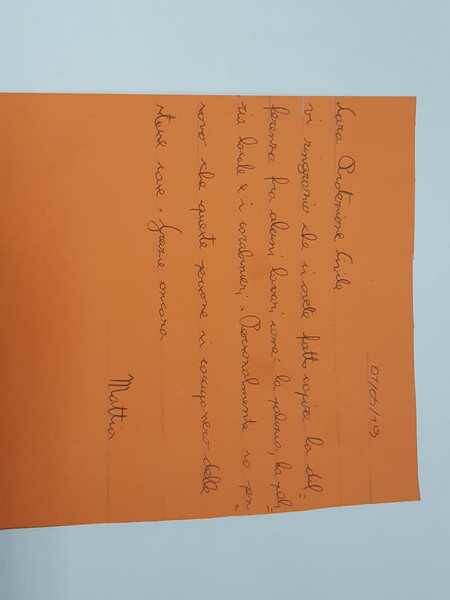 07/05/19
Cara Protezione Civile
vi ringrazio che ci avete fatto capire la dif=
ferenza fra alcuni lavori come: la polizia, la poli=
zia locale e i carabinieri. Personalmente io pen=
savo che queste persone si occupavano delle
stesse cose. Grazie ancora
Mattia